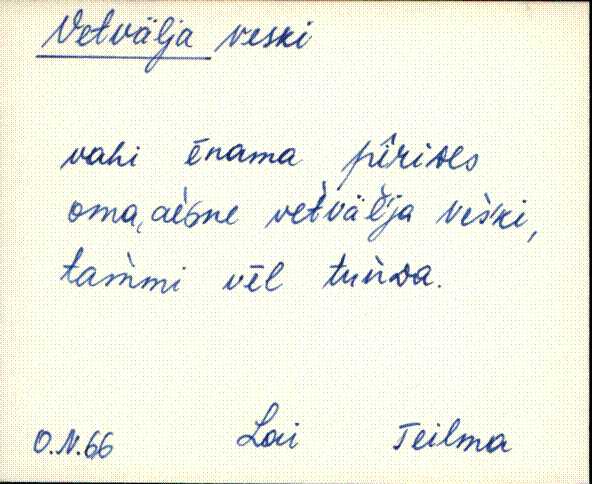 Vetvälja veski
vahi ēnama pîrises
oma, aèsne vet̀väl̆'ja ves̀ki,
tam̀mi vēl tuǹsa.
O.N.66 Lai Teilma